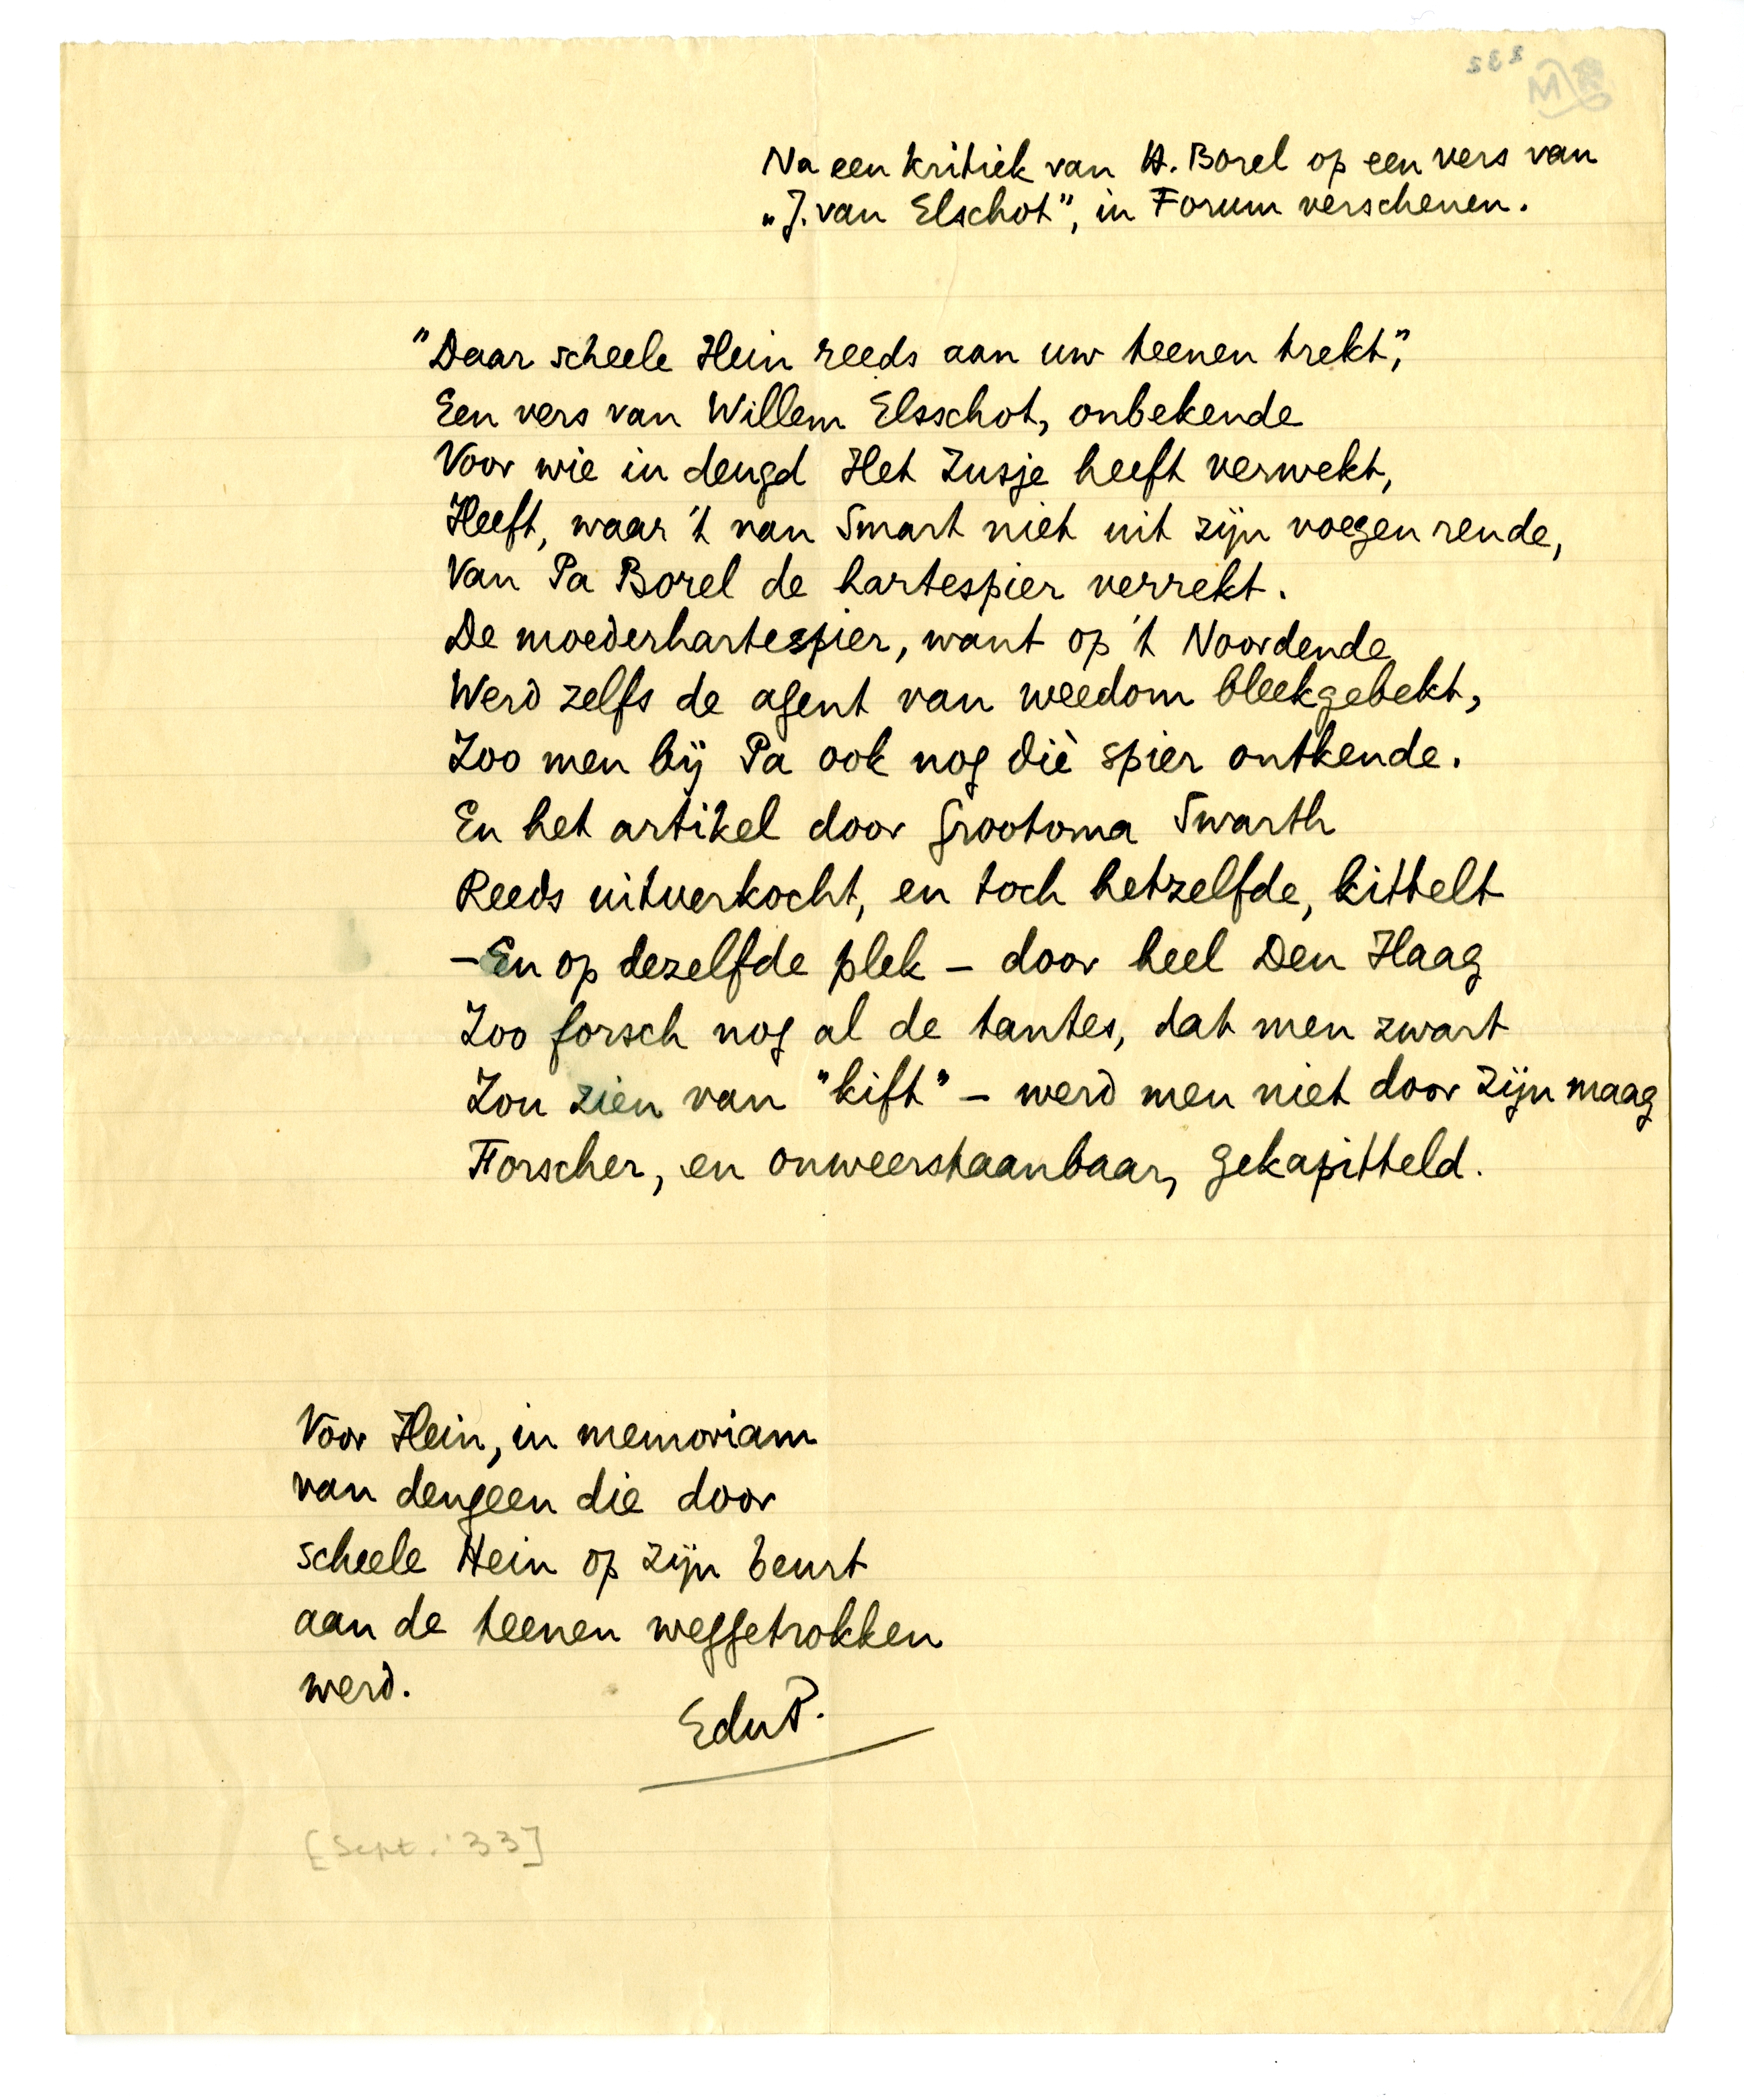 232
Na een kritiek van H. Borel op een vers van
„J. van Elschot”, in Forum verschenen.
"Daar scheele Hein reeds aan uw teenen trekt",
Een vers van Willem Elsschot, onbekende
Voor wie in deugd Het Zusje heeft verwekt,
Heeft, waar 't van Smart niet uit zijn voegen rende,
Van Pa Borel de hartespier verrekt.
De moederhartespier, want op 't Noordende
Werd zelfs de agent van weedom bleekgebekt,
Zoo men bij Pa ook nog diè spier ontkende.
En het artikel door Grootoma Swarth
Reeds uitverkocht, en toch hetzelfde, kittelt
– En op dezelfde plek – door heel Den Haag
Zoo forsch nog al de tantes, dat men zwart
Zou zien van "kift" – werd men niet door zijn maag
Forscher, en onweerstaanbaar, gekapitteld.
Voor Hein, in memoriam
van dengeen die door
scheele Hein op zijn beurt
aan de teenen weggetrokken
werd.
EduP.
[Sept. '33]